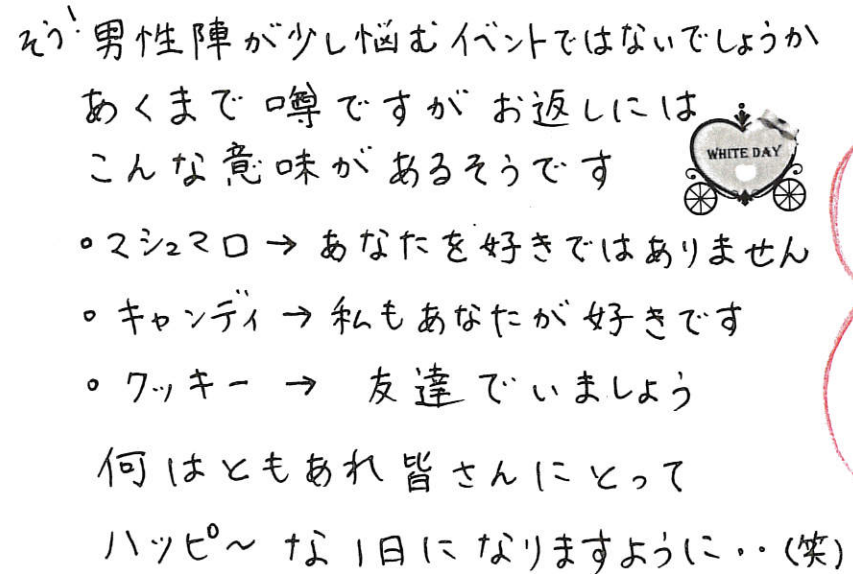 そう!男性陣が少し悩むイベントではないでしょうか
あくまで噂ですがお返しには
こんな意味があるそうです
WHITE DAY
・マシュマロ→あなたを好きではありません
・キャンディ→私もあなたが好きです
・クッキー→友達でいましょう
何はともあれ皆さんにとって
ハッピ〜な1日になりますように・・(笑)